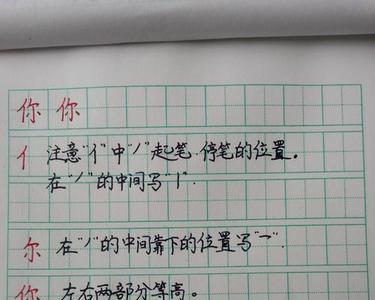 你 你
亻 注意“亻”中“丿”起笔、停笔的位置。
在“丿”的中间写“丨”.
尔 在“丿”的中间靠下的位置写“㇖”.
你 左右两部分等高。